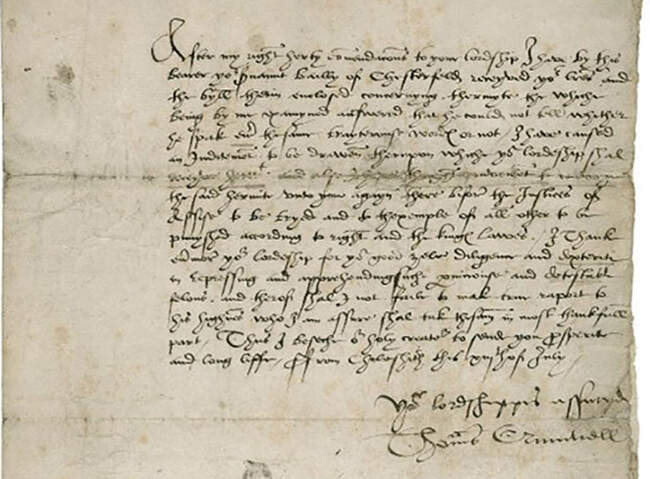 After my right herty comendacons to your lordship I have by this
bearer yor servaunt bailly of Chesterfeld receyved yor lres and
the byll therin enclosed concernyng thermyte the whiche
being by me examyned answered that he could not tell whether
he spak the same trayterouse words or not I have caused
an Indictament to be drawen therupon whiche yor lordeship shal
receyve herewt and also thought convenient to remayne
the said hermite unto you agayn there bifore the Justices of
Assise to be tryed and to thexemple of all other to be
punyshed according to right and the kings lawes. I Thank
yor lordeship for yor good zele diligence and dexterite
in repressing and apprehending suche and detestable
felons. and therof shal I not faile to make true raport to
his highnes who I am assure shal tak the same in most thankfull
part. Thus I beseche or holy creator to send you prosperite
and long liffe. From Chelsehith this July
Yor lordshippis assuryd
Thoms Crumwell